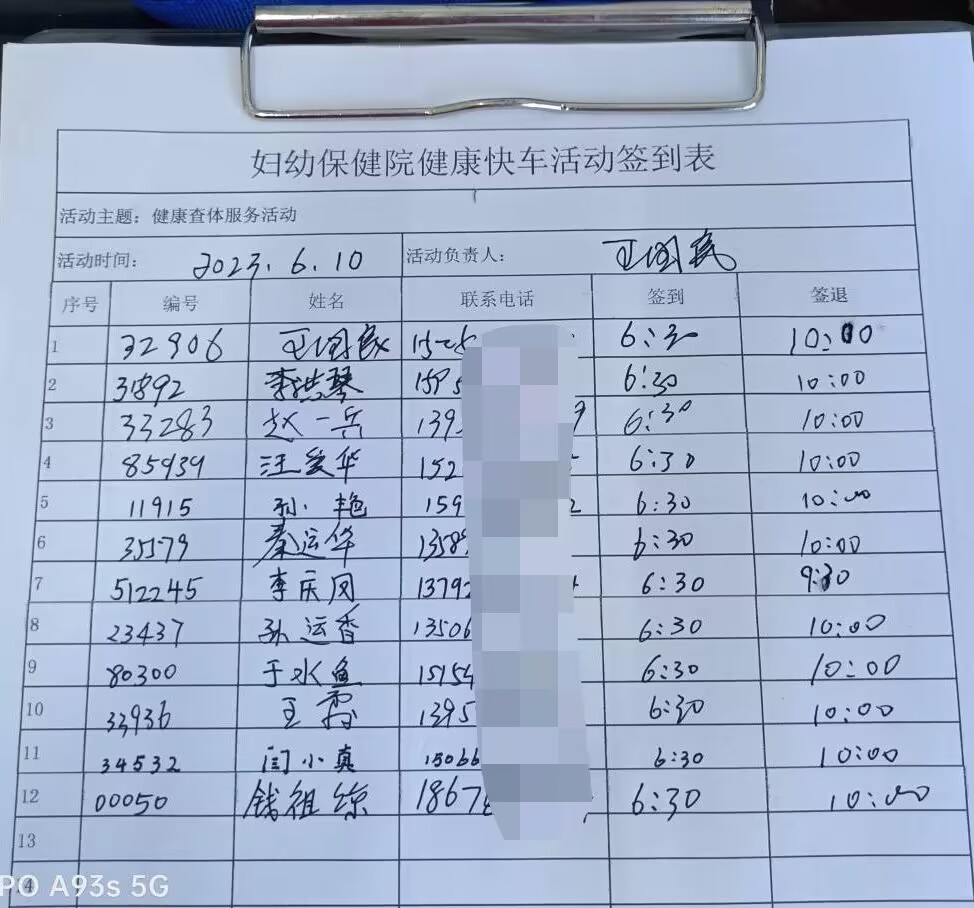 妇幼保健院健康快车活动签到表
活动主题：健康查体服务活动
活动时间： 2023.6.10 活动负责人： 王国民
序号 编号 姓名 联系电话 签到 签退
1 32906 王国民 6:30 10:00
2 31892 李洪琴 6:30 10:00
3 33283 赵一兵 139 6:30 10:00
4 85939 汪爱华 152 6:30 10:00
5 11915 孙艳 159 2 6:30 10:00
6 35579 秦运华 1358 6:30 10:00
7 512245 李庆凤 13792 6:30 9:30
8 23437 孙运香 13506 6:30 10:00
9 80300 于水鱼 15154 6:30 10:00
10 33936 王霞 1395 6:30 10:00
11 34532 闫小真 15066 6:30 10:00
12 00050 钱祖 1867 6:30 10:00
13
14
PO A93s 5G